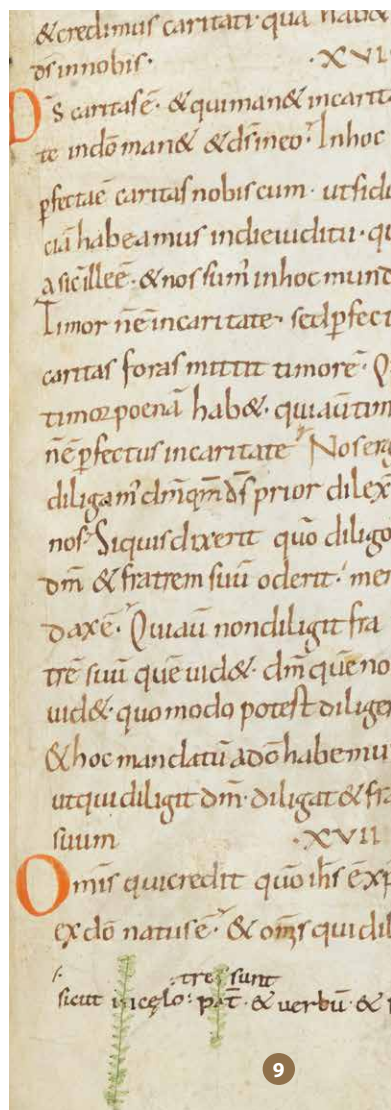 & credimus caritati· qua hab&
ds innobis· ·XVI
DS caritas ē· & qui man& in carita
te in dō man& & ds ineo· Inhoc
pfecta ē caritas nobiscum· ut fidu
ciā habeamus in die iudicii· qu
a sic ille ē· & nos sum' inhoc mund
Timor nē in caritate· sed pfect
caritas foras mittit timorē· Q
timor poenā hab&· qui aū tim
nē pfectus in caritate Nos erg
diligam' dm qm ds prior dilex
nos· Siquis dixerit quō diligo
dm & fratrem suū oderit· men
dax ē· Qui aū non diligit fra
trē suū quē uid&· dm quē no
uid&· quomodo potest dilige
& hoc mandatū a dō habemu
ut qui diligit dm· diligat & fra
suum ·XVII
Omis qui credit quō ihs ē xp
ex dō natus ē· & oms qui dil
tres sunt
sicut in celo: pat· & uerbū· &
9